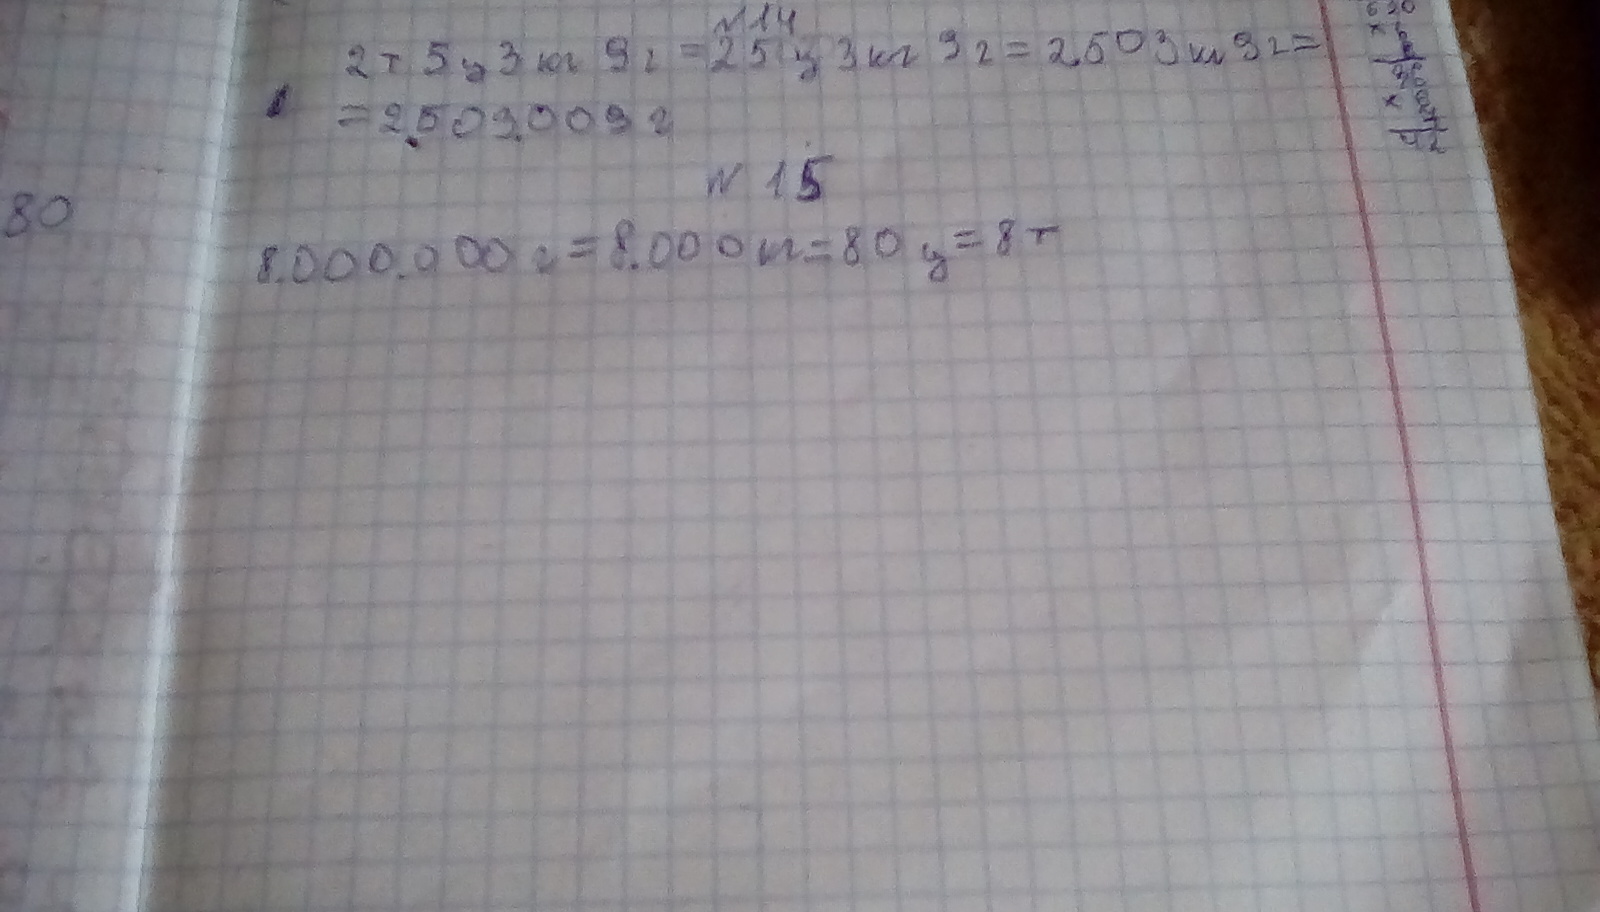 N14
2т 5ц 3кг 9г = 25ц 3кг 9г = 2.503кг 9г =
= 2.503.009г
N 15
80
8.000.000г = 8.000кг = 80ц = 8т